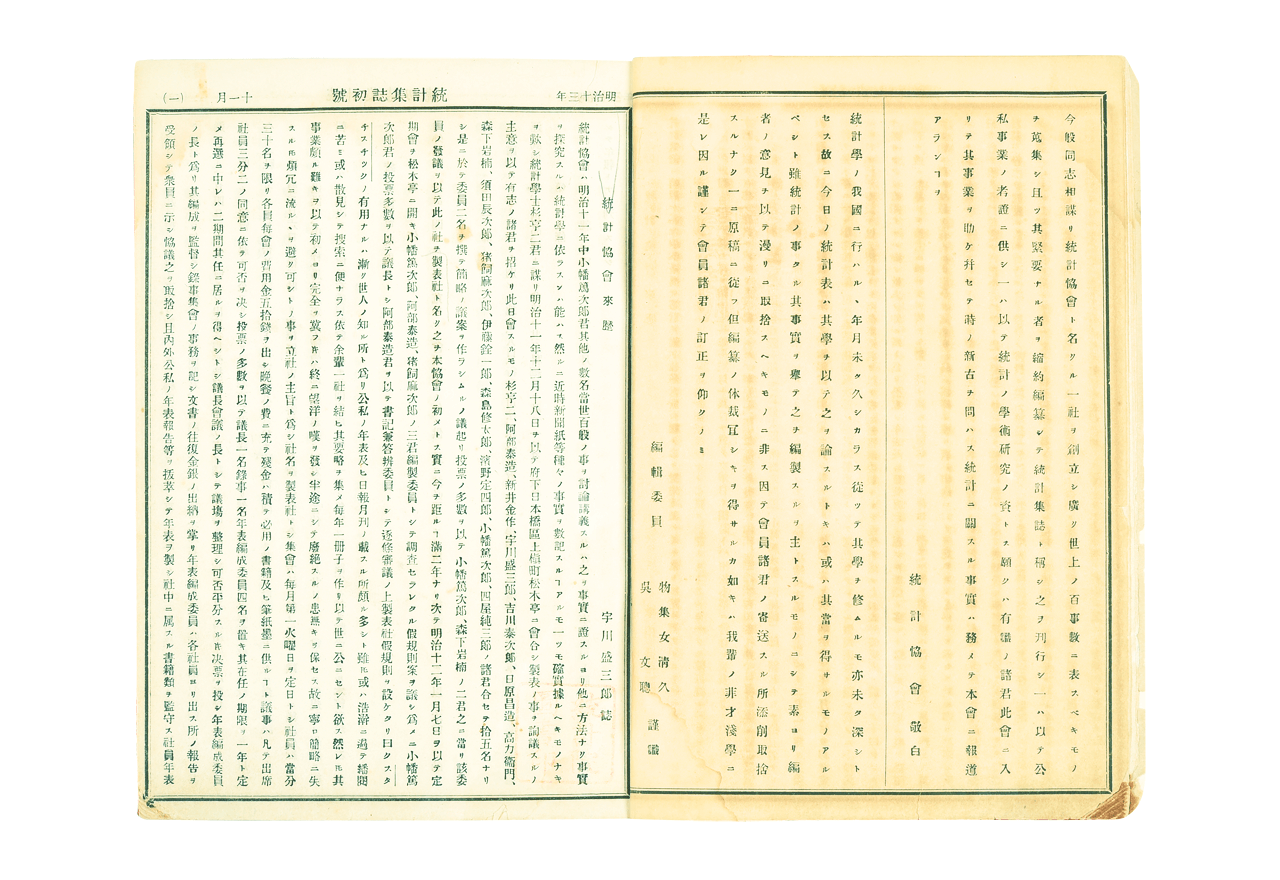 今般同志相謀リ統計協會ト名クル一社ヲ創立シ廣ク世上ノ百事數ニ表スベキモノ
チ蒐集シ且ツ其緊要ナル者ヲ縮約編纂シテ統計集誌ト稱シ之ヲ刊行シ一ハ以テ公
私事業ノ考證ニ供シ一ハ以テ統計ノ學術研究ノ資トス願クハ有識ノ諸君此會ニ入
リテ其事業ヲ助ケ幷セテ時ノ新古ヲ問ハス統計ニ關スル事實ハ務メテ本會ニ報道
アランコヲ
統計協會敬白
統計學ノ我國ニ行ハルヽ年月未タ久シカラス從ツテ其學ヲ修ムルモ亦未タ深シト
セス故ニ今日ノ統計表ハ其學ヲ以テ之ヲ論スルトキハ或ハ其當ヲ得サルモノアル
ベシト雖統計ノ事タル其事實ヲ擧テ之ヲ編製スルヲ主トスルモノニシテ素ヨリ編
者ノ意見ヲ以テ漫リニ取捨スヘキモノニ非ス因テ會員諸君ノ寄送スル所添削取捨
スルナク一ニ原稿ニ從フ但編纂ノ体裁宜シキヲ得サルカ如キハ我輩ノ非才淺學ニ
是レ因ル謹ンテ會員諸君ノ訂正ヲ仰クノミ
編輯委員
物集女淸久
吳文聰
謹識
明治十三年
統計集誌初號
十一月
(一)
統計協會來歷
宇川盛三郎誌
統計協會ハ明治十一年中小幡篤次郎君其他ノ數名當世百般ノ事ヲ討論講義スルハ之ヲ事實ニ證スルヨリ他ニ方法ナク事實
ヲ探究スルハ統計學ニ依ラスンハ能ハス然ルニ近時新聞紙等種々ノ事實ヲ數記スルコアルモ一ツモ確實據ルヘキモノナキ
ヲ歎シ統計學士杉亨二君ニ謀リ明治十一年十二月十八日ヲ以テ府下日本橋區上槇町松本亭ニ會合シ製表ノ事ヲ詢議スルノ
主意ヲ以テ有志ノ諸君ヲ招ケリ此日會スルモノ杉亨二、阿部泰造、新井金作、宇川盛三郎、吉川泰次郎、日原昌造、高力衞門、
森下岩楠、須田辰次郎、猪飼麻次郎、伊藤銓一郎、森島修太郎、濱野定四郎、小幡篤次郎、四屋純三郎ノ諸君合セテ拾五名ナリ
シ是ニ於テ委員二名ヲ撰テ簡略ノ議案ヲ作ラシムルノ議起リ投票ノ多數ヲ以テ小幡篤次郎、森下岩楠ノ二君之ニ當リ該委
員ノ發議ヲ以テ此ノ社ヲ製表社ト名ク之ヲ本協會ノ初メトス實ニ今ヲ距ルコ滿二年ナリ次テ明治十二年一月七日ヲ以テ定
期會ヲ松本亭ニ開キ小幡篤次郎、阿部泰造、猪飼麻次郎ノ三君編製委員トシテ調査セラレタル假規則案ヲ議シ爲メニ小幡篤
次郎君ノ投票多數ヲ以テ議長トシ阿部泰造君ヲ以テ書記兼答辨委員トシテ逐條審議ノ上製表社假規則ヲ設ケタリ曰クスタ
チスチツクノ有用ナルハ漸ク世人ノ知ル所ト爲リ公私ノ年表及ヒ日報月刊ノ載スル所頗ル多シト雖𪜈或ハ浩澣ニ過テ繙閱
ニ苦ミ或ハ散見シテ搜索ニ便ナラス依テ余輩一社ヲ結ヒ其要略ヲ集メ每年一册子ヲ作リ以テ世ニ公ニセント欲ス然レ𪜈其
事業頗ル難キヲ以テ初メヨリ完全ヲ冀フキハ終ニ望洋ノ嘆ヲ發シ半途ニシテ廢絕スルノ患無キヲ保セス故ニ寧ロ簡略ニ失
スル𪜈煩冗ニ流ルヽヲ避ク可シトノ事ヲ立社ノ主旨ト爲シ社名ヲ製表社トシ集會ハ每月第一火曜日ヲ定日トシ社員ハ當分
三十名ヲ限リ各員每會ノ費用金五拾錢ヲ出シ晚餐ノ費ニ充テ殘金ハ積テ必用ノ書籍及ヒ筆紙墨ニ供ルコト議事ハ凡テ出席
社員三分二ノ同意ニ依テ可否ヲ決シ投票ノ多數ヲ以テ議長一名錄事一名年表編成委員四名ヲ置キ其在任ノ期限ヲ一年ト定
メ再選ニ中レハ二期間其任ニ居ルヲ得ヘシトシ議長會議ノ長トシテ議塲ヲ整理シ可否平分スルキ決票ヲ投シ年表編成委員
ノ長ト爲リ其編成ヲ監督シ錄事集會ノ事務ヲ記シ文書ノ往復金銀ノ出納ヲ掌リ年表編成委員ハ各社員ヨリ出ス所ノ報告ヲ
受領シテ衆員ニ示シ協議之ヲ取捨シ且內外公私ノ年表報告等ヲ拔萃シテ年表ヲ製シ社中ニ属スル書籍類ヲ監守ス社員年表